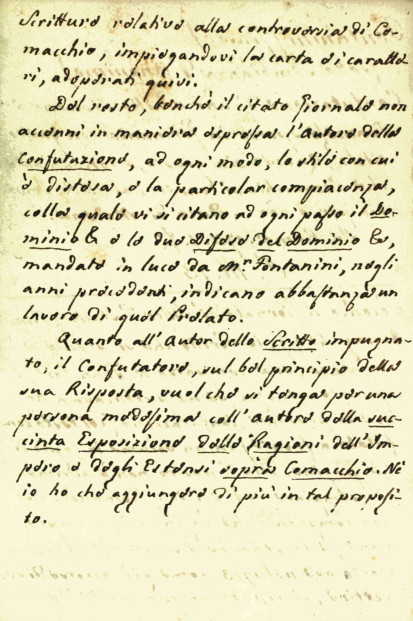 Scritture relative alla controversia di Co-
macchio, impiegandovi la carta e i caratte-
ri, adoperati quivi.
Del resto, benchè il citato Giornale non
accenni in maniera espressa l'Autore della
Confutazione, ad ogni modo, lo stile con cui
è distesa, e la particolar compiacenza,
colla quale vi si citano ad ogni passo il Do-
minio & e le due Difese del Dominio &c,
mandate in luce da Mr. Fontanini, negli
anni precedenti, indicano abbastanza un
lavoro di quel Prelato.
Quanto all'Autor dello Scritto impugna-
to, il Confutatore, sul bel principio della
sua Risposta, vuol che si tenga per una
persona medesima coll'Autore della suc-
cinta Esposizione delle Ragioni dell'Im-
pero e degli Estensi sopra Comacchio. Nè
io ho che aggiungere di più in tal proposi-
to.